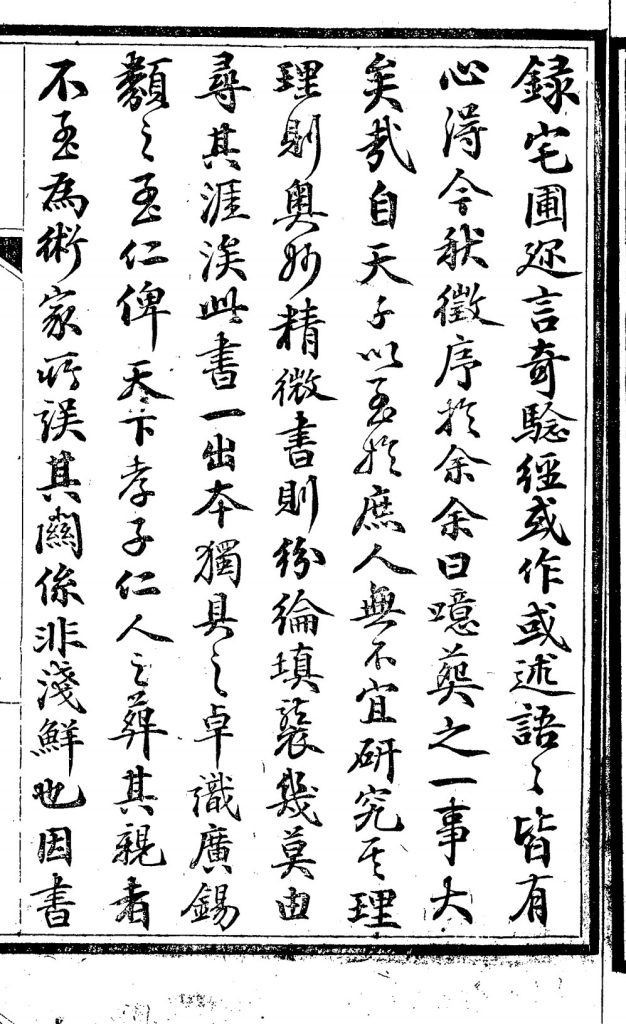 録宅圃邇言奇驗經或作或述語〻皆有
心得今秋徵序於余余曰噫葬之一事大
矣㢤自天子以至於庶人無不宜研究其理
理則奥妙精微書則紛綸填裝幾莫由
尋其涯涘此書一出本獨具之卓識廣錫
類之至仁俾天下孝子仁人之葬其親者
不至為術家所誤其關係非淺鮮也因書